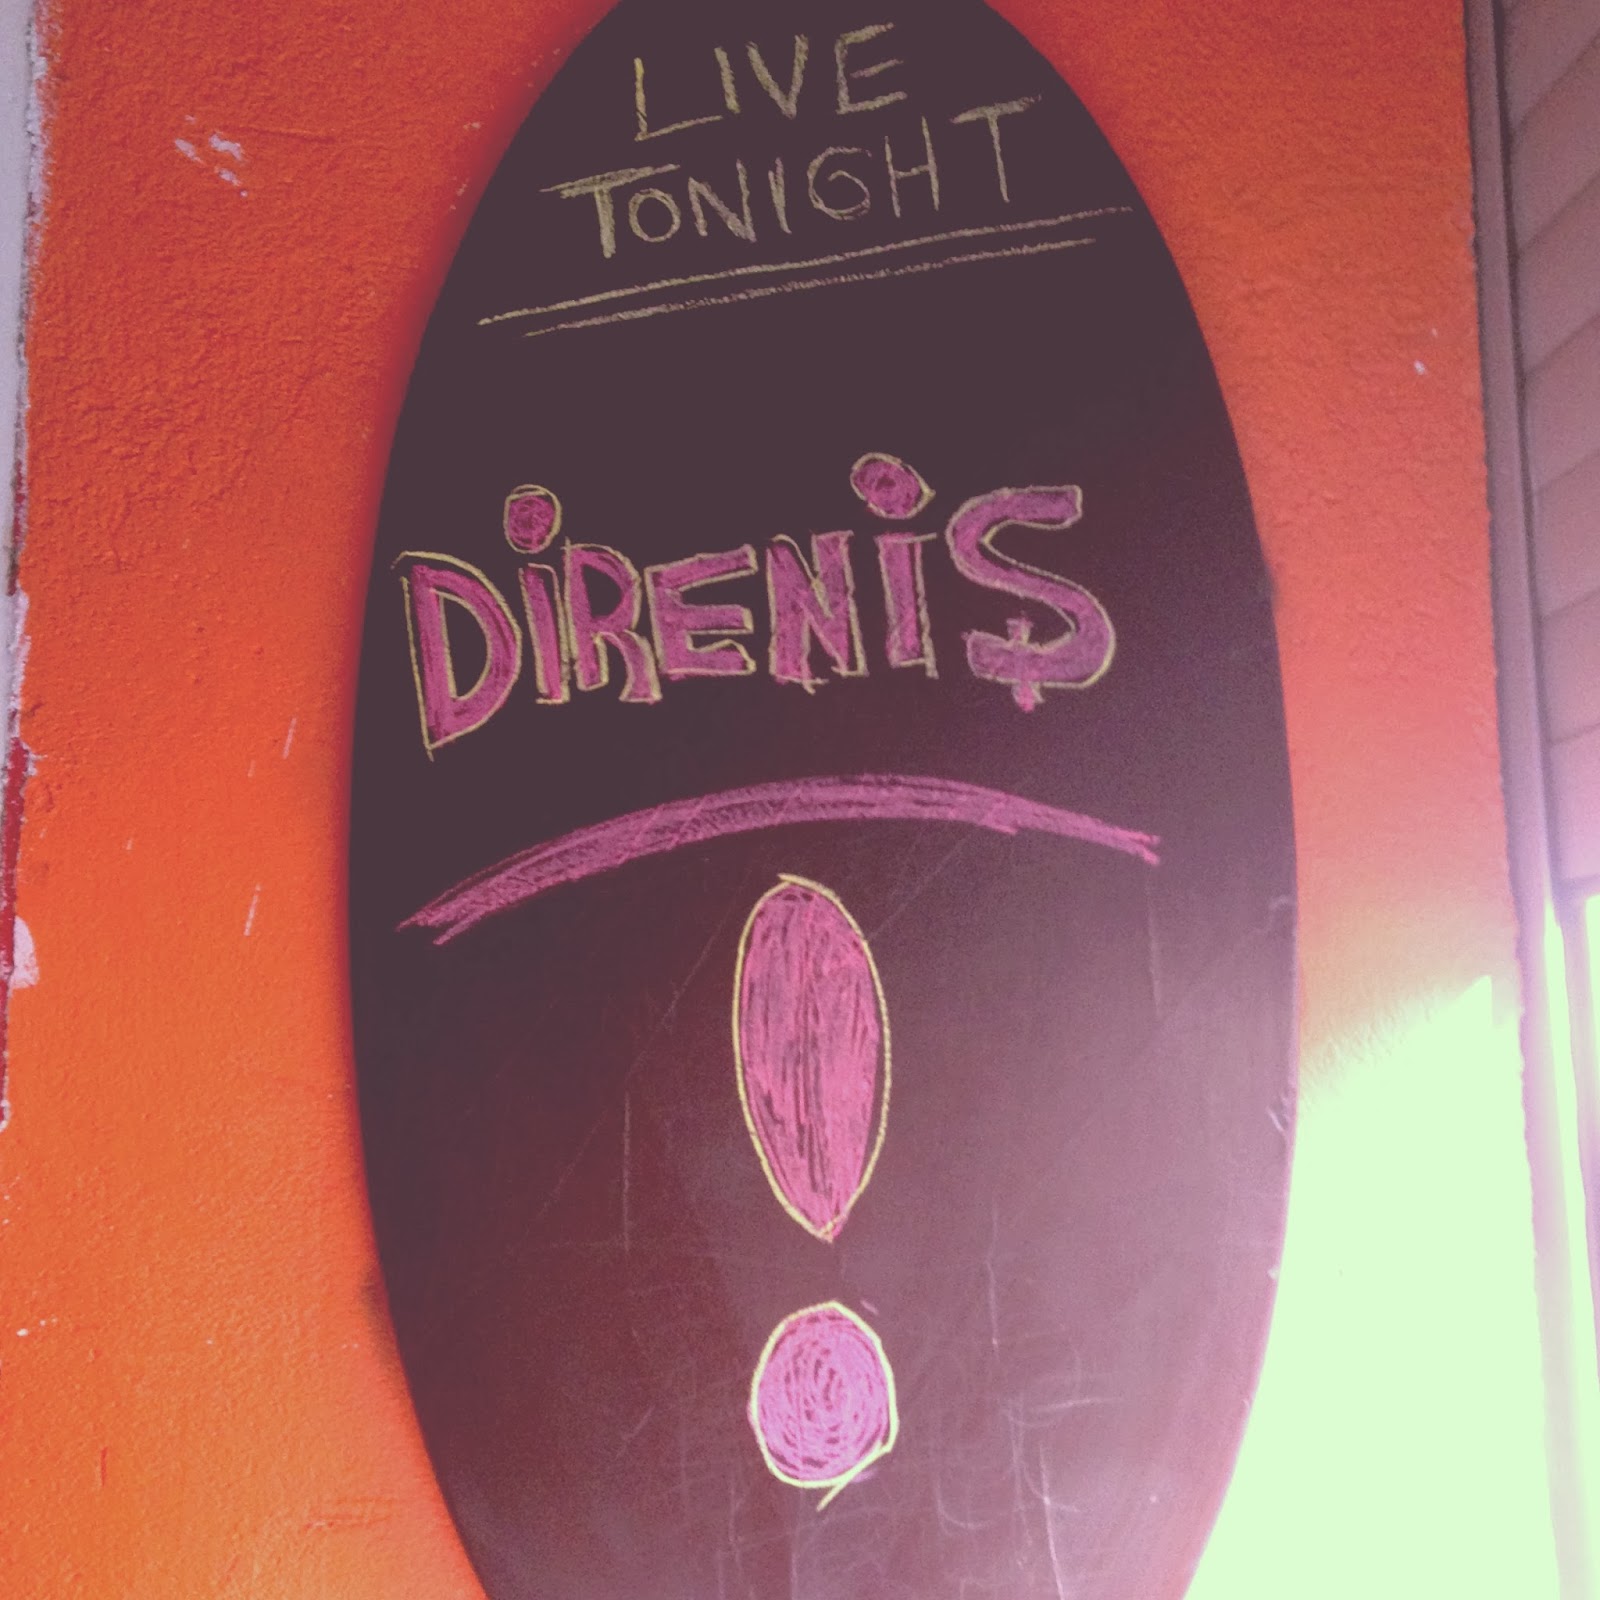 LIVE
TONIGHT
DİRENİŞ
!